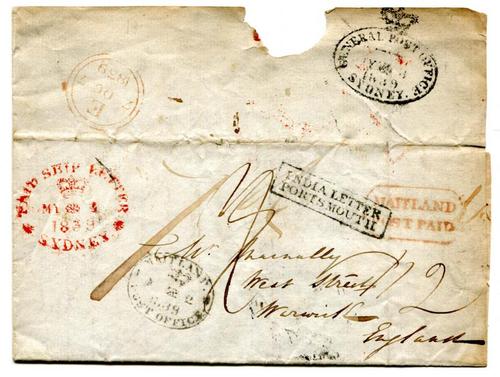 GENERAL POST OFFICE
1839
SYDNEY.
1839
E
PAID SHIP LETTER
MY 3
1839
SYDNEY
INDIA LETTER
PORTSMOUTH
MAITLAND
POST PAID
MAITLAND
2
1839
POST OFFICE
Mr.
West Street
Warwick
England